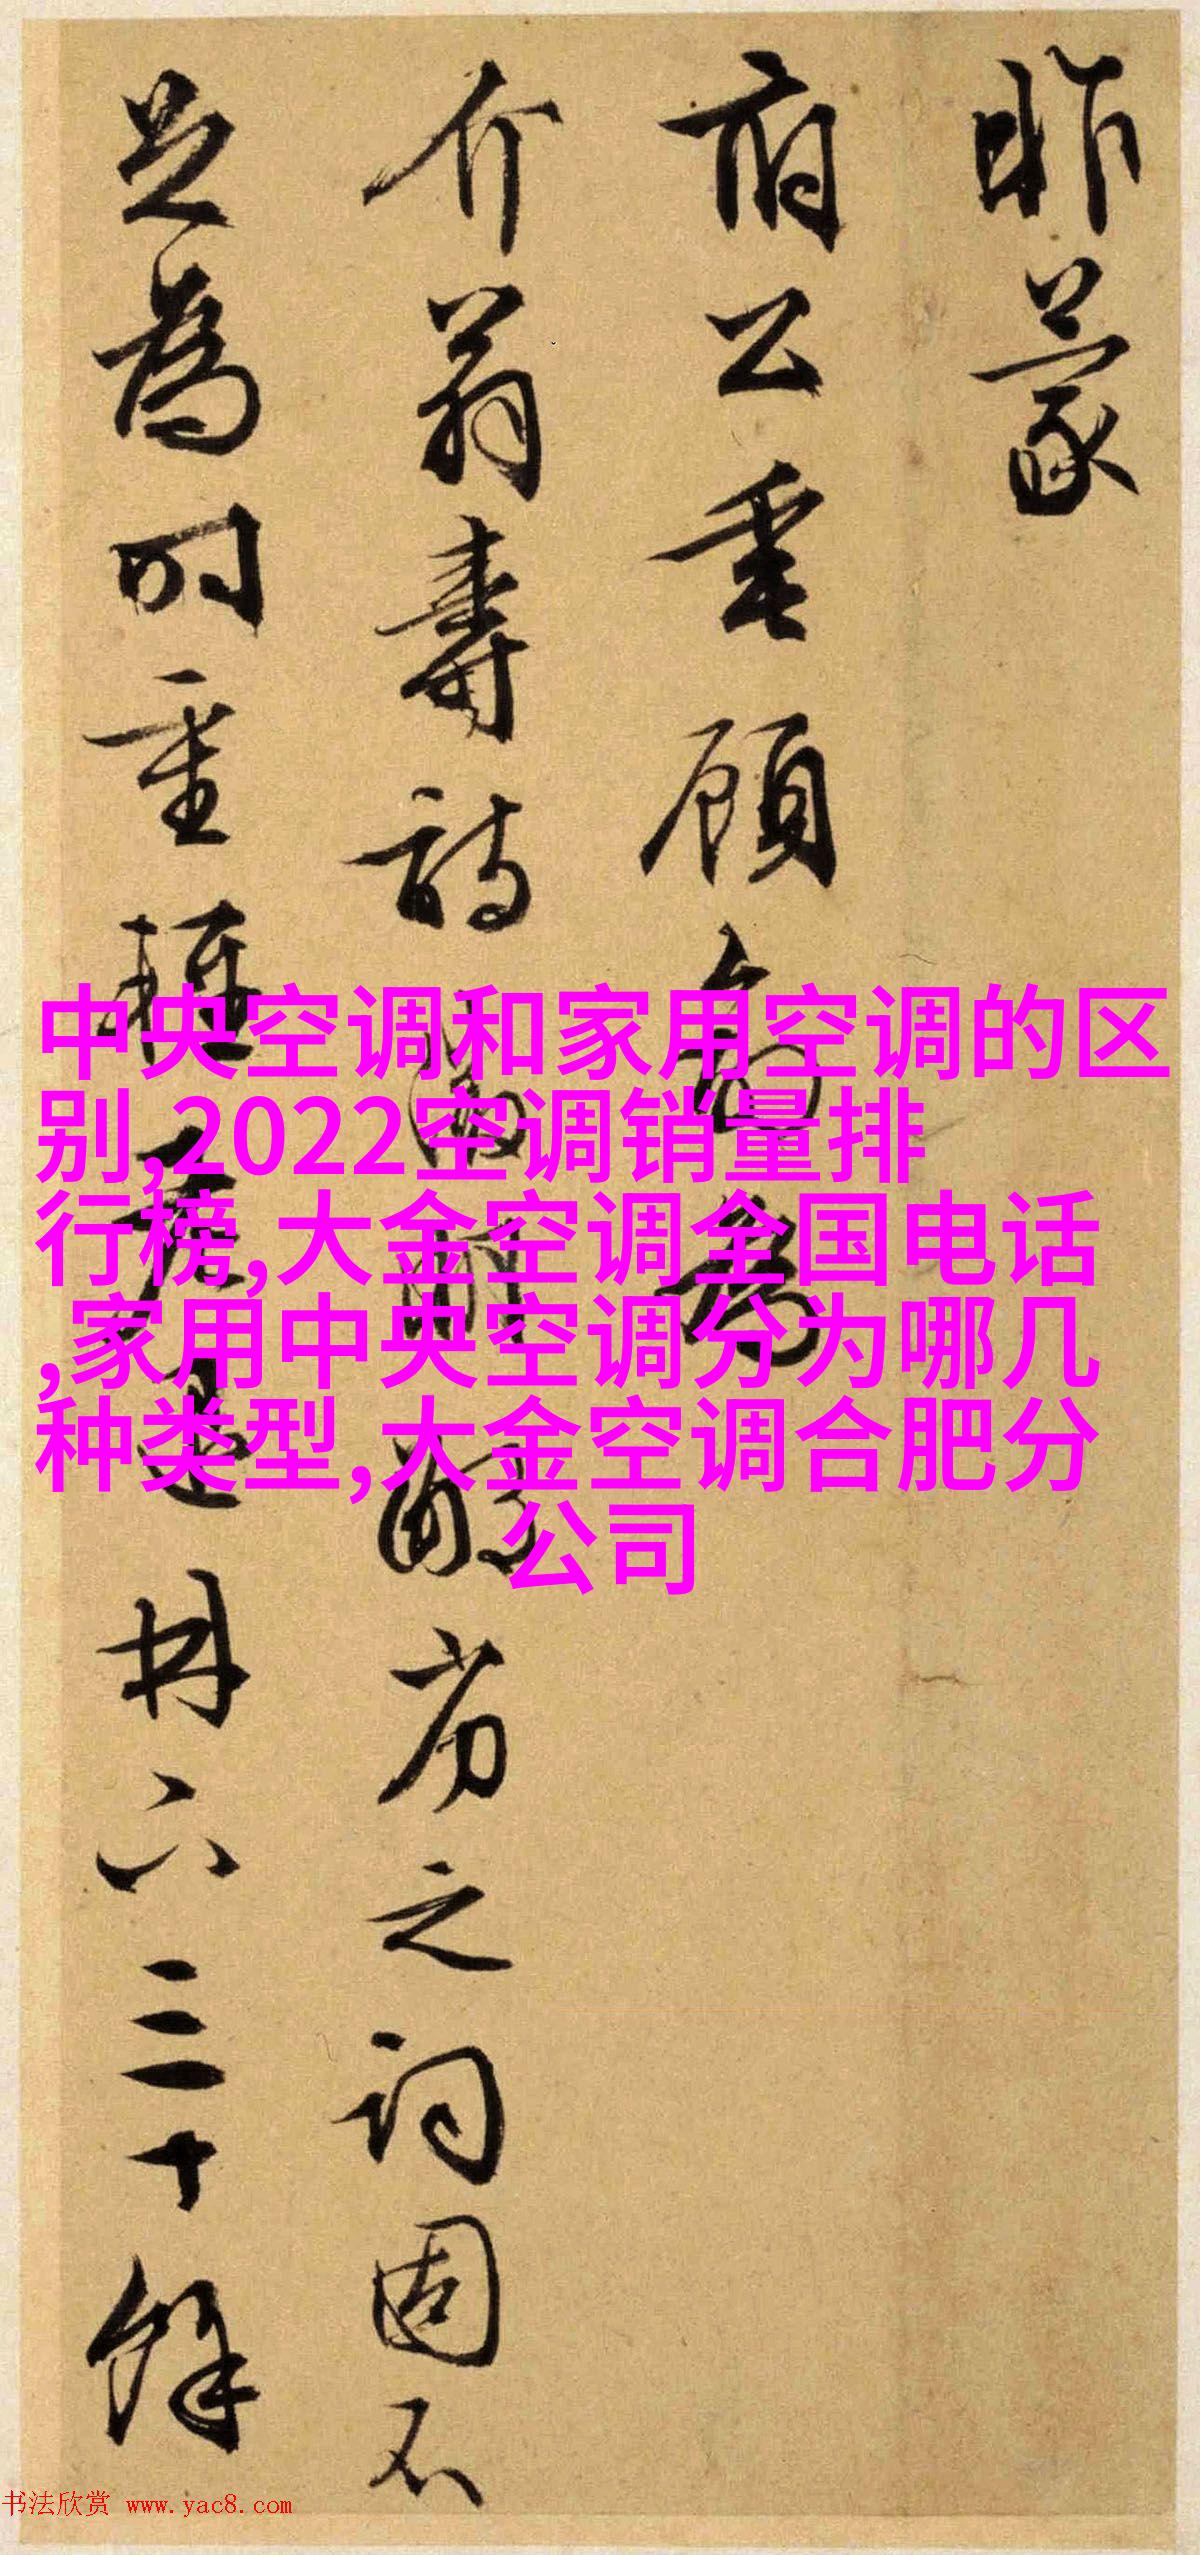 昨蒙
府公垂顧勉為
介翁壽詩
之詞固不
足為時重
冊六三十餘
中央空调和家用空调的区
别,2022空调销量排
行榜,大金空调全国电话
,家用中央空调分为哪几
种类型,大金空调合肥分
公司
书法欣赏 www.yac8.com